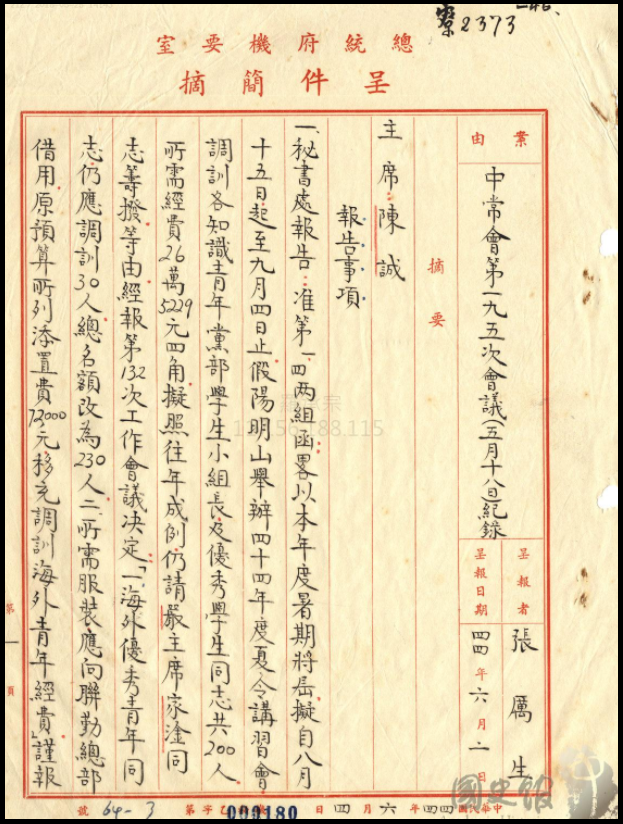 總統府機要室
呈件簡摘
案由
中常會第一九五次會議(五月十八日)紀錄
呈報者
張厲生
呈報日期
四四年六月二日
摘要
主席:陳誠
報告事項
一、秘書處報告:准第一、四兩組函畧以本年度暑期將屆擬自八月
十五日起至九月四日止假陽明山舉辦四十四年度夏令講習會
調訓各知識青年黨部學生小組長及優秀學生同志共200人
所需經費26萬5229元四角擬照往年成例仍請嚴主席家淦同
志籌撥等由經報第132次工作會議决定「一、海外優秀青年同
志仍應調訓30人總名額改為230人二、所需服裝應向聯勤總部
借用原預算所列添置費72000元移充調訓海外青年經費」謹報
第一頁
中華民國四四年六月四日
乙字第
000180
64-3
號
2373
國史館